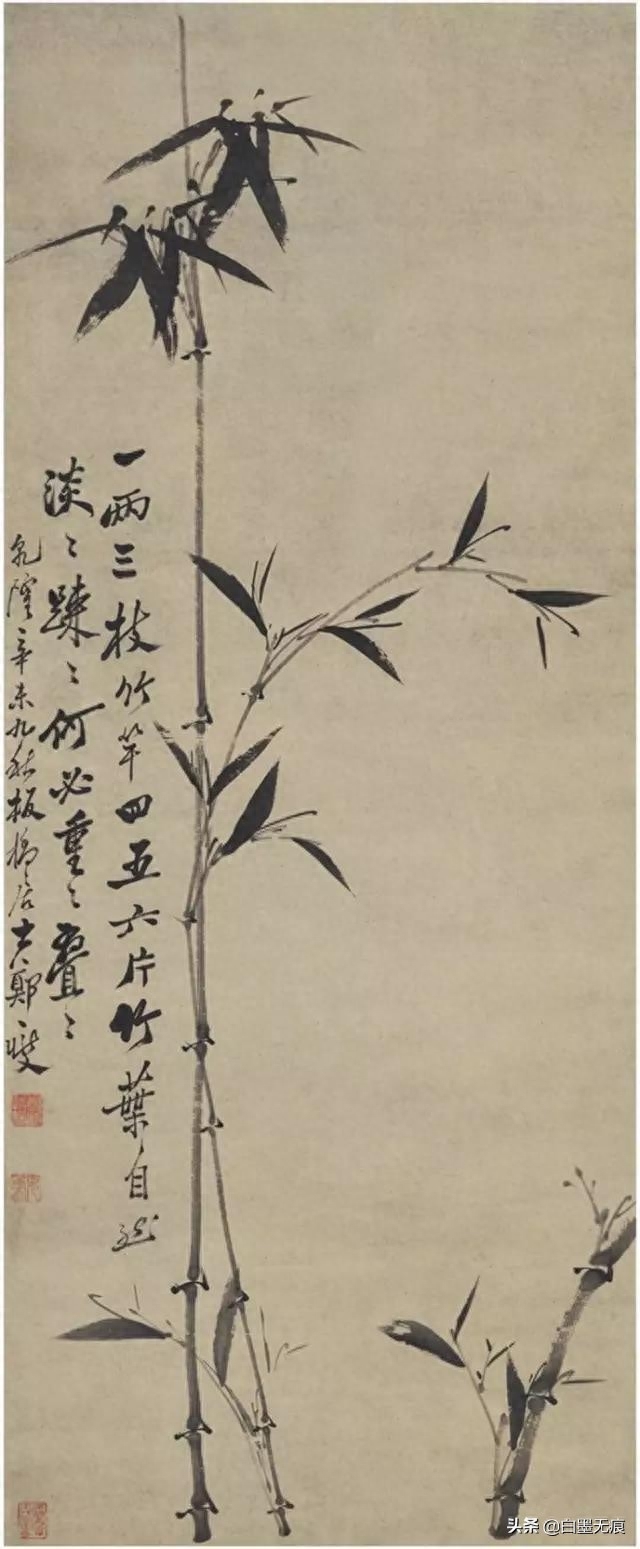 一兩三枝竹竿四五六片竹葉自然
淡〻踈〻何必重〻疊〻
乾隆辛未九秋板橋居士鄭燮
头条 @白墨无痕